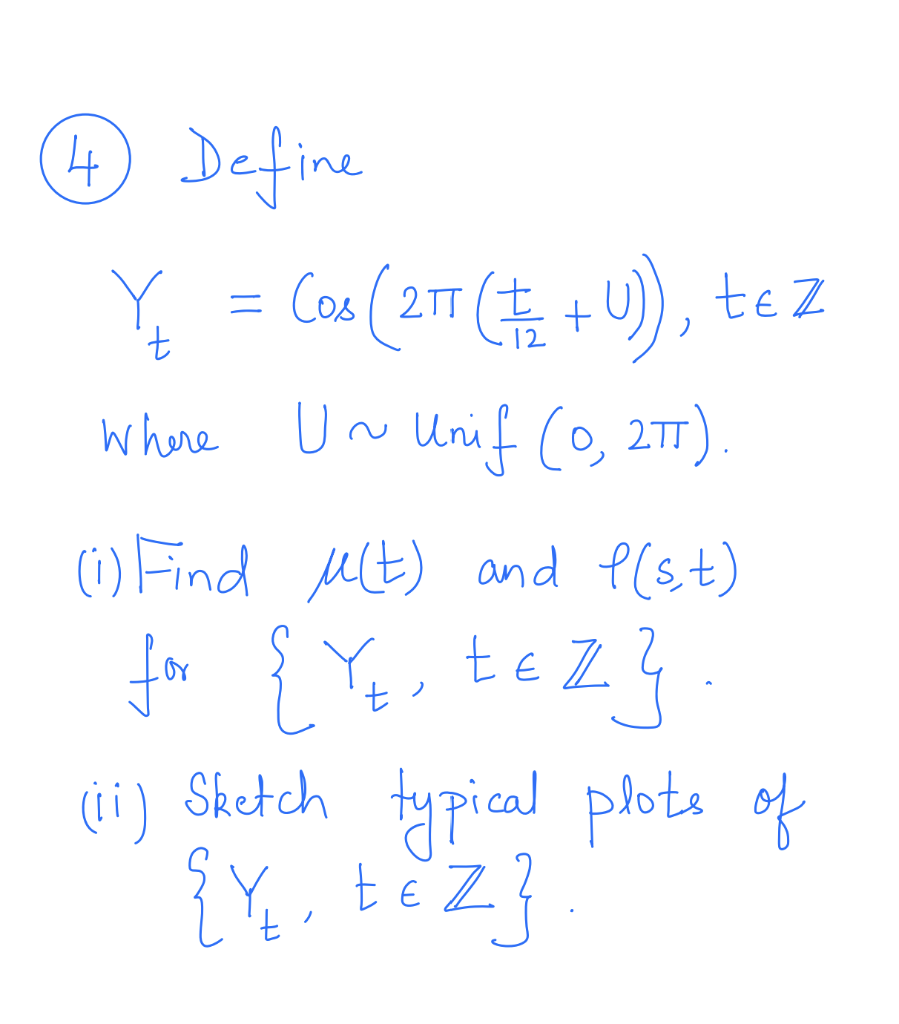 ④ Define
Y_t = Cos(2π(t/12 + U)), t ∈ ℤ
where U ~ Unif (0, 2π).
(i) Find μ(t) and ρ(s,t)
for { Y_t, t ∈ ℤ }.
(ii) Sketch typical plots of
{ Y_t, t ∈ ℤ }.